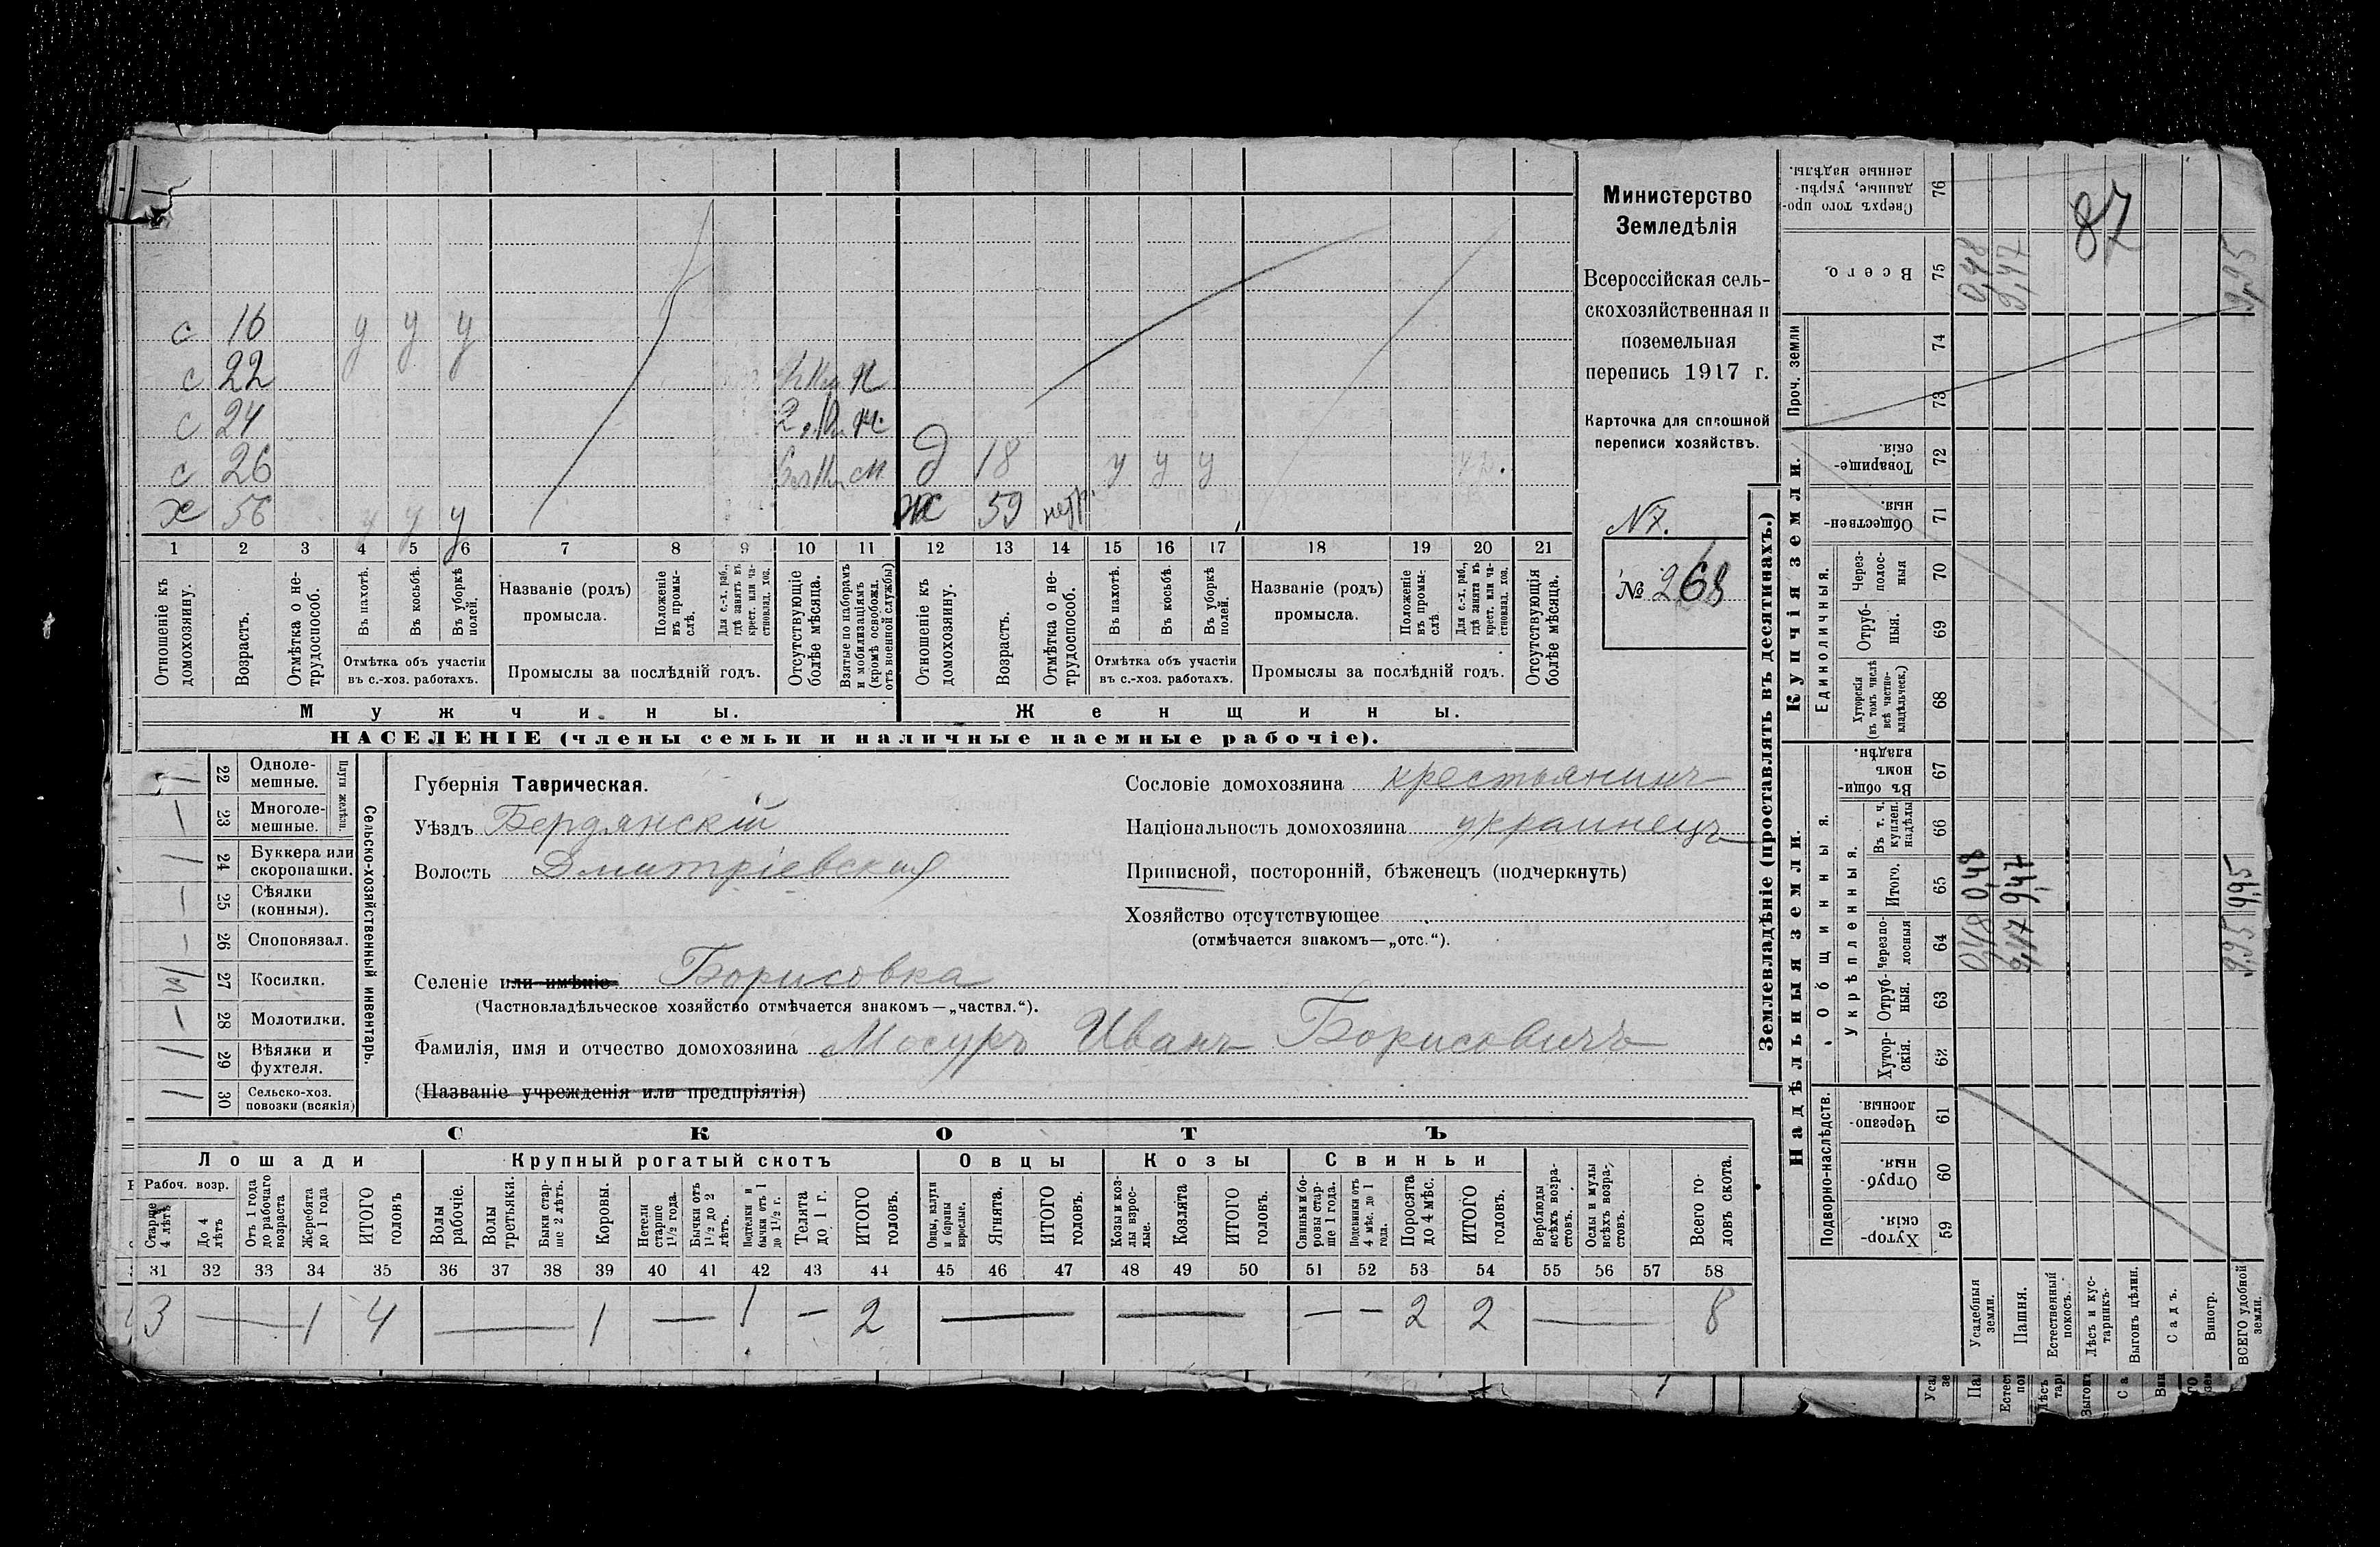 с 16 у у у
с 22 п
с 24
с 26 сп д 18 у у у
х 56 у у у ж 59 нетр.
1 2 3 4 5 6 7 8 9 10 11 12 13 14 15 16 17 18 19 20 21
Отношеніе къ домохозяину.
Возрастъ.
Отмѣтка о не-трудоспособ.
Въ пахотѣ.
Въ косьбѣ.
Въ уборкѣ полей.
Отмѣтка объ участіи
въ с.-хоз. работахъ.
Названіе (родъ)
промысла.
Положеніе въ промы-слѣ.
Для с.-х. раб., гдѣ занятъ въ крест. или ча-стновлад. хоз.
Промыслы за послѣдній годъ.
Отсутствующіе болѣе мѣсяца.
Взятые по наборамъ и мобилизаціямъ (кромѣ освобожд. отъ военной службы)
Отношеніе къ домохозяину.
Возрастъ.
Отмѣтка о не-трудоспособ.
Въ пахотѣ.
Въ косьбѣ.
Въ уборкѣ полей.
Отмѣтка объ участіи
въ с.-хоз. работахъ.
Названіе (родъ)
промысла.
Положеніе въ промы-слѣ
Для с.-х. раб., гдѣ занята въ крест. или ча-стновлад. хоз.
Промыслы за послѣдній годъ.
Отсутствующія болѣе мѣсяца.
Мужчины.
Женщины.
НАСЕЛЕНІЕ (члены семьи и наличные наемные рабочіе).
Министерство
Земледѣлія
Всероссійская сель-
скохозяйственная и
поземельная
перепись 1917 г.
Карточка для сплошной
переписи хозяйствъ.
N7.
№ 268
Сельско-хозяйственный инвентарь.
Плуги желѣзн.
22 Одноле-мешные.
23 Многоле-мешные.
24 Буккера или скоропашки.
25 Сѣялки (конныя).
26 Споповязал.
27 Косилки.
28 Молотилки.
29 Вѣялки и фухтеля.
30 Сельско-хоз. повозки (всякія)
Губернія Таврическая.
Уѣздъ Бердянскій
Волость Дмитріевская
Селеніе или имѣніе Борисовка
(Частновладѣльческое хозяйство отмѣчается знакомъ—„частвл.“).
Фамилія, имя и отчество домохозяина Мосуръ Иванъ Борисовичъ
(Названіе учрежденія или предпріятія)
Сословіе домохозяина крестьянинъ
Національность домохозяина украинецъ
Приписной, посторонній, бѣженецъ (подчеркнуть)
Хозяйство отсутствующее
(отмѣчается знакомъ—„отс.“).
СКОТЪ
Лошади
Крупный рогатый скотъ
Овцы
Козы
Свиньи
Рабоч. возр.
Старше 4 лѣтъ
До 4 лѣтъ
Отъ 1 года до рабочаго возраста
Жеребята до 1 года
ИТОГО головъ
Волы рабочіе.
Волы третьяки.
Быки стар-ше 2 лѣтъ.
Коровы.
Нетели старше 1½ года.
Бычки отъ 1½ до 2 лѣтъ.
Подтелки и бычки отъ 1 до 1½ г.
Телята до 1 г.
ИТОГО головъ.
Овцы, валухи и бараны взрослые.
Ягнята.
ИТОГО головъ.
Козы и коз-лы взрос-лые.
Козлята
ИТОГО головъ.
Свиньи и бо-ровы стар-ше 1 года.
Подсвинки отъ 4 мѣс. до 1 года.
Поросята до 4 мѣс.
ИТОГО головъ.
Верблюды всѣхъ возра-стовъ.
Ослы и мулы всѣхъ возра-стовъ.
Всего го-ловъ скота.
31 32 33 34 35 36 37 38 39 40 41 42 43 44 45 46 47 48 49 50 51 52 53 54 55 56 57 58
3 — 1 4 — 1 — 1 — 2 — — — — 2 2 — 8
Землевладѣніе (проставлять въ десятинахъ.)
Надѣльныя земли.
Купчія земли.
Проч. земли
Подворно-наслѣдств.
Общинныя.
Укрѣпленныя.
Единоличныя.
Хутор-скія. 59
Отруб-ныя. 60
Черезпо-лосныя. 61
Хутор-скія. 62
Отруб-ныя. 63
Черезпо-лосныя 64
Итого. 65
Въ т. ч. куплен. надѣлы 66
Въ общи-номъ владѣн. 67
Хуторскія (въ томъ числѣ всѣ частно-владѣльческ.) 68
Отруб-ныя. 69
Через-полос-ныя 70
Обществен-ныя. 71
Товарище-скія. 72
73
74
Всего. 75
Сверхъ того про-данные, укрѣп-ленные надѣлы. 76
87
Усадебныя земли. 0,48 0,48 0,48
Пашня. 9,47 9,47 9,47
Естественный покосъ.
Лѣсъ и кус-тарникъ.
Выгонъ цѣлин.
Садъ.
Виногр.
ВСЕГО удобной земли. 9,95 9,95 9,95